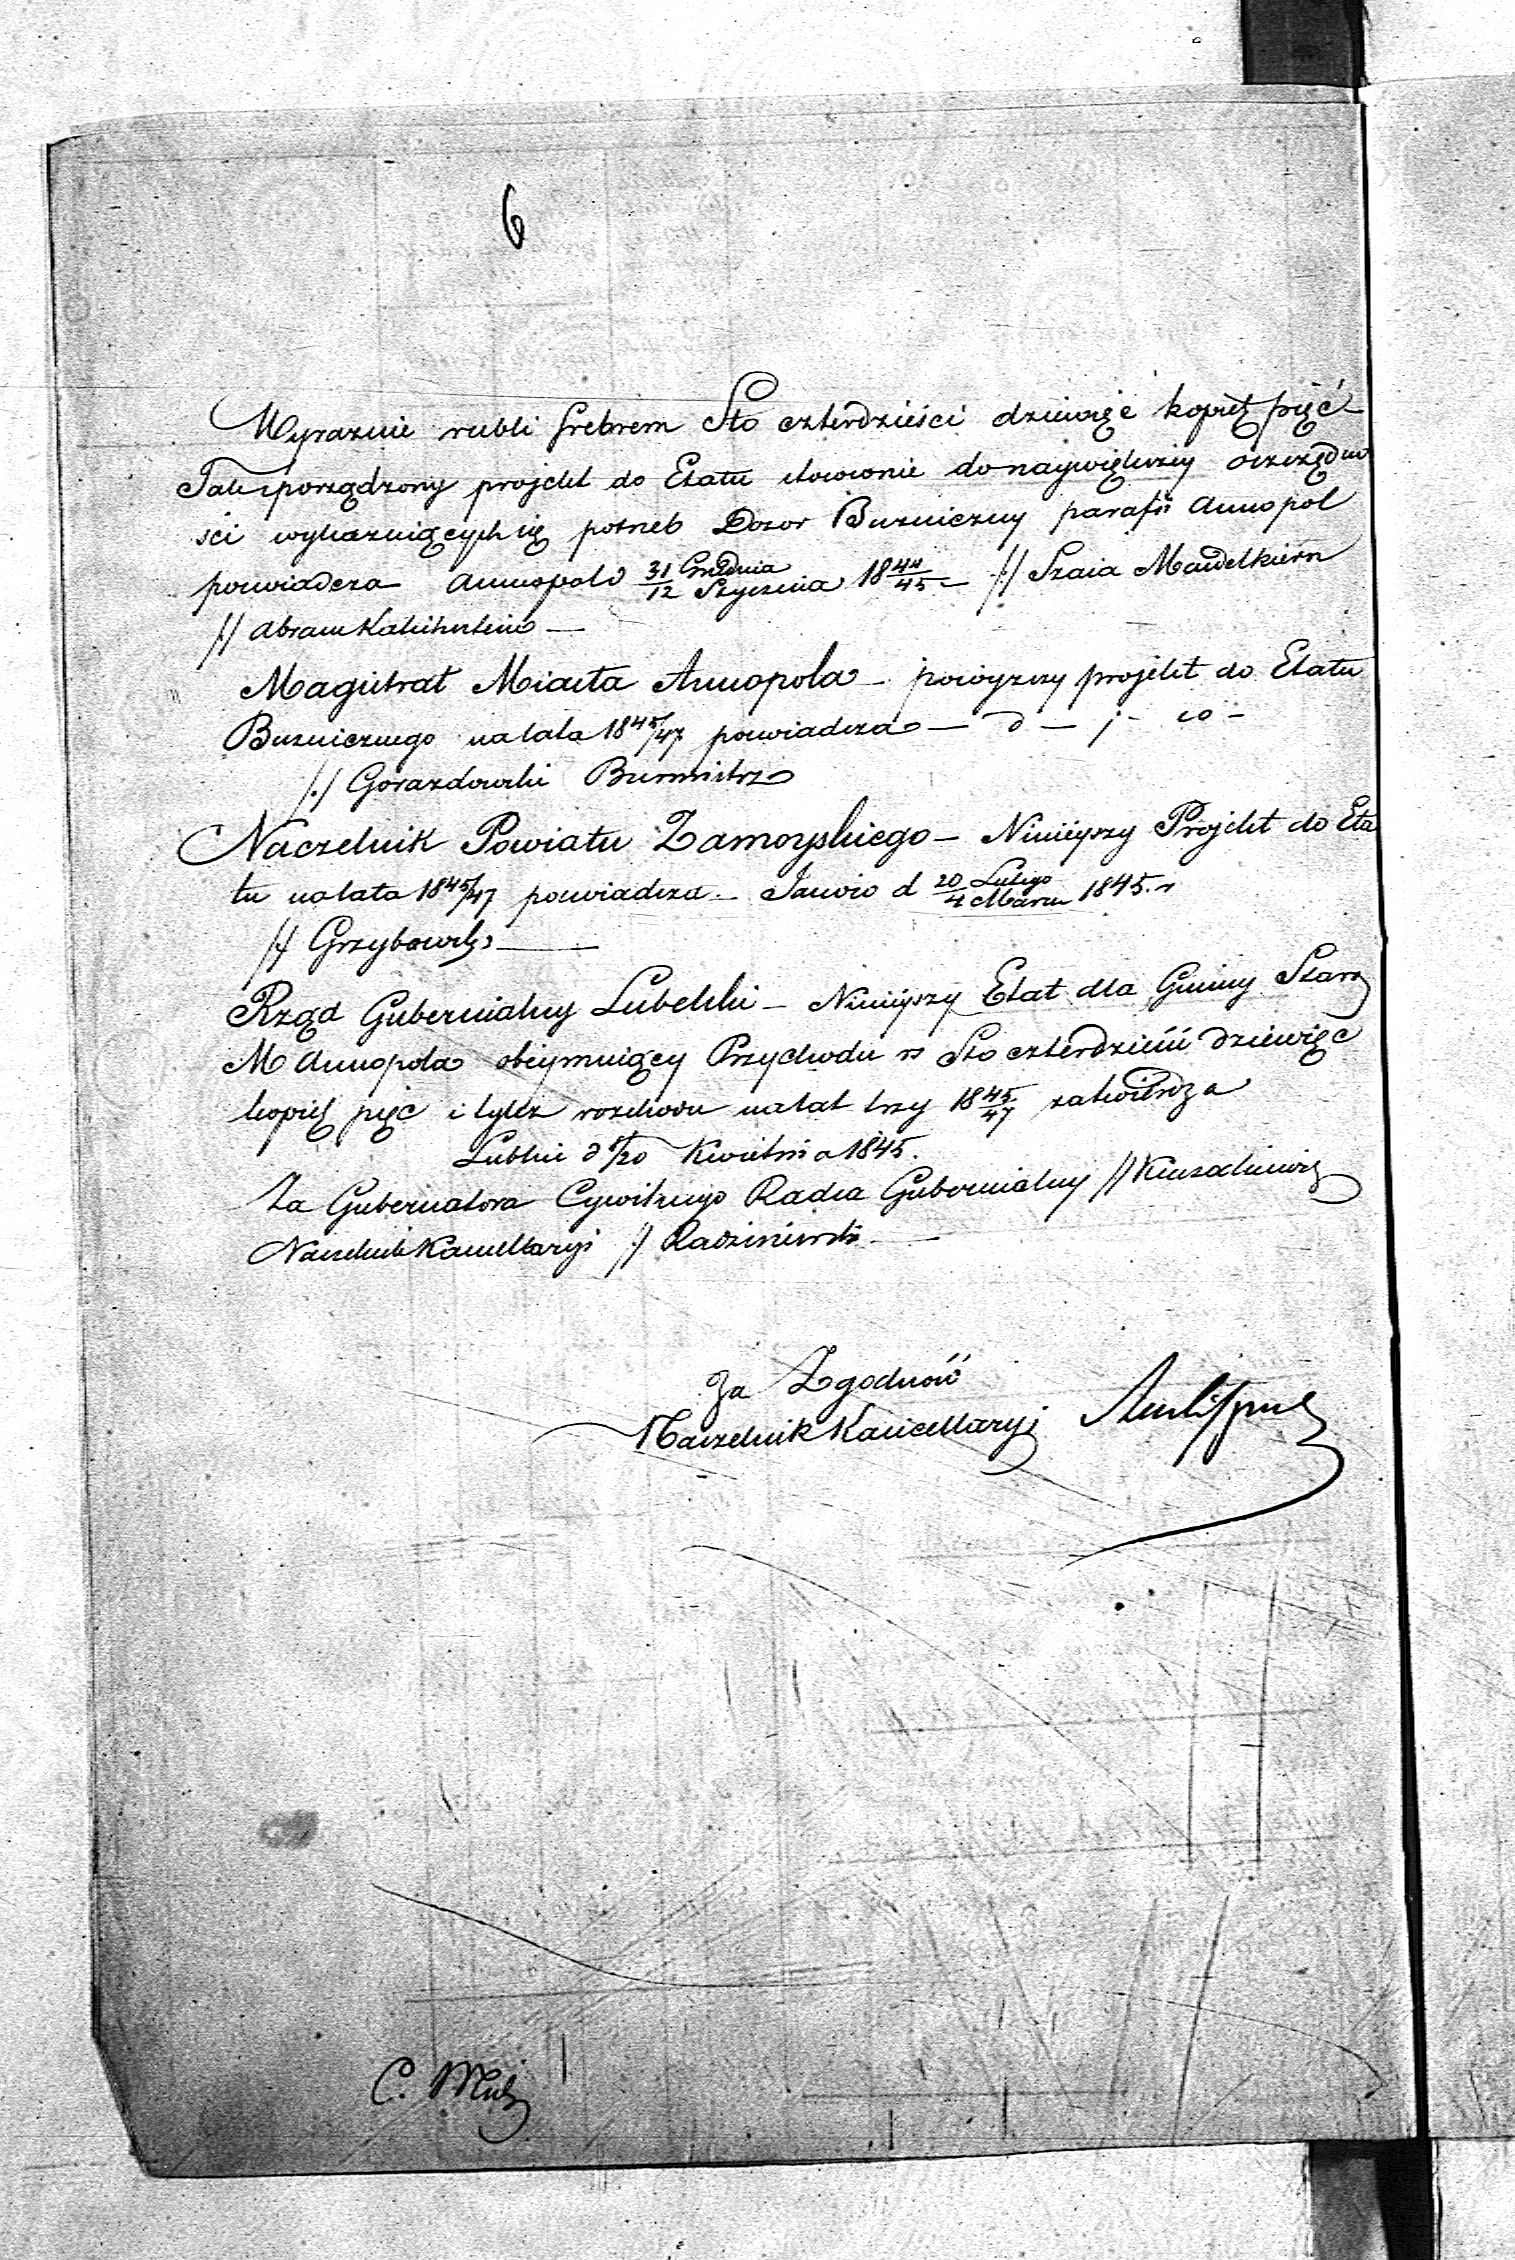 6
Wyraznie rubli srebrem Sto czterdzieści dziewięć kopiek pięć
Tak sporządzony projekt do Etatu stosownie do naywiększey oszczędno
ści wykazuiących się potrzeb Dozor Bużniczny parafii Annopol
poswiadcza Annopol d 31/12 Grudnia/Stycznia 18 44/45 – // Szaia Mandelkiern
// Abram
Magistrat Miasta Annopola – powyższy projekt do Etatu
Bużnicznego na lata 18 45/47 poswiadcza –
/./ Gorazdowski Burmistrz
Naczelnik Powiatu Zamoyskiego – Ninieyszy Projekt do Eta
tu na lata 18 45/47 poswiadcza – Janow d 20/4 Lutego/Marca 1845 r
// Grzybowski
Rząd Gubernialny Lubelski – Ninieyszy Etat dla Gminy Starz
M Annopola obeymuiący Przychodu rs Sto czterdzieści dziewięć
kopiek pięć i tyleż rozchodu na lat trzy 18 45/47 zatwierdza
Lublin d 8/20 Kwietnia 1845.
Za Gubernatora Cywilnego Radca Gubernialny //
Naczelnik Kancellaryi //
Za Zgodność
Naczelnik Kancellaryi
C.